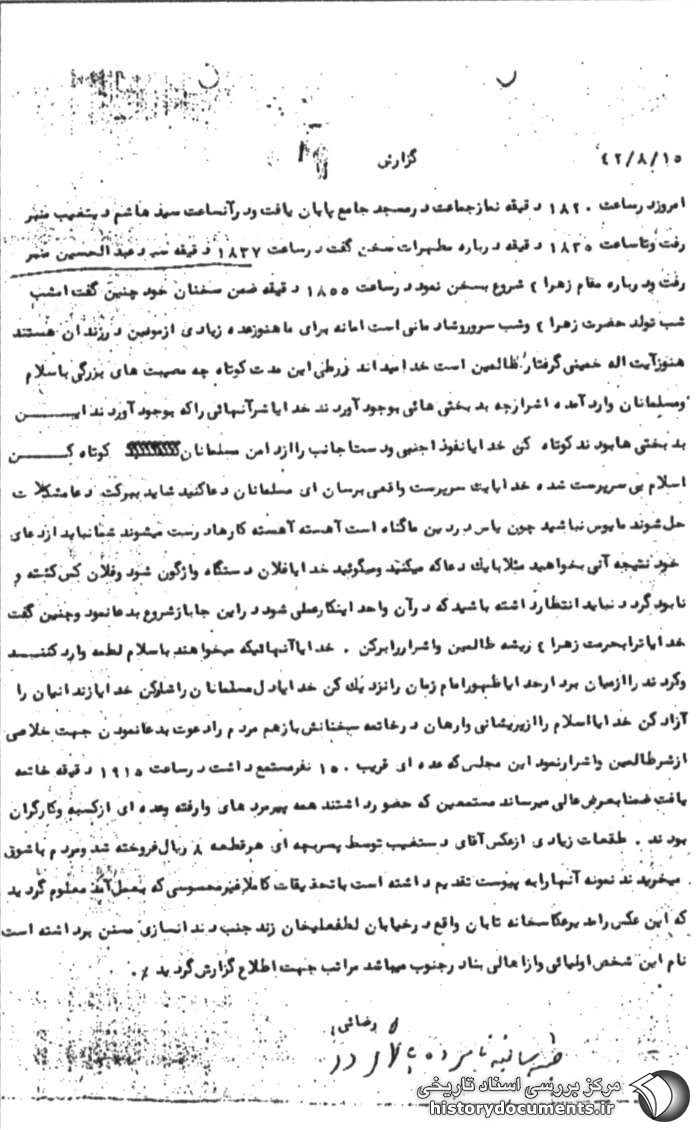 ۴۲/۸/۱۵ گزارش
امروز در ساعت ۱۸۲۰ دقیقه نماز جماعت در مسجد جامع پایان یافت و در آنساعت سید هاشم دستغیب منبر
رفت و تا ساعت ۱۸۳۵ دقیقه درباره مطهرات سخن گفت در ساعت ۱۸۳۷ دقیقه سید عبدالحسین منبر
رفت و درباره مقام زهرا ع شروع بسخن نمود در ساعت ۱۸۵۵ دقیقه ضمن سخنان خود چنین گفت امشب
شب تولد حضرت زهرا ع و شب سرور و شادمانی است اما نه برای ما هنوز عده زیادی از مومنین در زندان هستند
هنوز آیت اله خمینی گرفتار ظالمین است خدا میداند در طی این مدت کوتاه چه مصیبت های بزرگی باسلام
و مسلمانان وارد آمده اشرار چه بدبختی هائی بوجود آوردند خدایا شر آنهائی را که بوجود آورند ایـــن
بدبختی ها بودند کوتاه کن خدایا نفوذ اجنبی و دست اجانب را از دامن مسلمانان کوتاه کــن
اسلام بی سرپرست شده خدایا یک سرپرست واقعی برسان ای مسلمانان دعا کنید شاید ببرکت دعا مشکلات
حل شوند مایوس نباشید چون یاس در دین ما گناه است آهسته آهسته کارها درست میشوند شما نباید از دعای
خود نتیجه آنی بخواهید مثلا با یک دعا که میکنید و میگوئید خدایا فلان دستگاه واژگون شود و فلان کس کشته و
نابود گردد نباید انتظار داشته باشید که در آن واحد اینکار عملی شود در این جا باز شروع بدعا نمود و چنین گفت
خدایا ترا بحرمت زهرا ع ریشه ظالمین و اشرار را برکن . خدایا آنهائیکه میخواهند باسلام لطمه وارد کننــد
و کردند را از میان بردار خدایا ظهور امام زمان را نزدیک کن خدایا دل مسلمانان را شاد کن خدایا زندانیان را
آزاد کن خدایا اسلام را از پریشانی وارهان در خاتمه سخنانش باز هم مردم را دعوت بدعا نمودن جهت خلاصی
از شر ظالمین و اشرار نمود این مجلس که عده ای قریب ۱۵۰ نفر مستمع داشت در ساعت ۱۹۱۵ دقیقه خاتمه
یافت ضمنا بعرض عالی میرساند مستمعین که حضور داشتند همه پیرمردهای وارفته و عده ای از کسبه و کارگران
بودند . قطعات زیادی از عکس آقای دستغیب توسط پسربچه ای هر قطعه ۸ ریال فروخته شد و مردم با شوق
میخریدند نمونه آنها را به پیوست تقدیم داشته است با تحقیقات کاملا غیر محسوسی که بعمل آمد معلوم گردید
که این عکس را مدیر عکاسخانه تابان واقع در خیابان لطفعلیخان زند جنب دندانسازی مسنن برداشته است
نام این شخص اولیائی و از اهالی بنادر جنوب میباشد مراتب جهت اطلاع گزارش گردید ٪ .
رضائی
مرکز بررسی اسناد تاریخی
historydocuments.ir